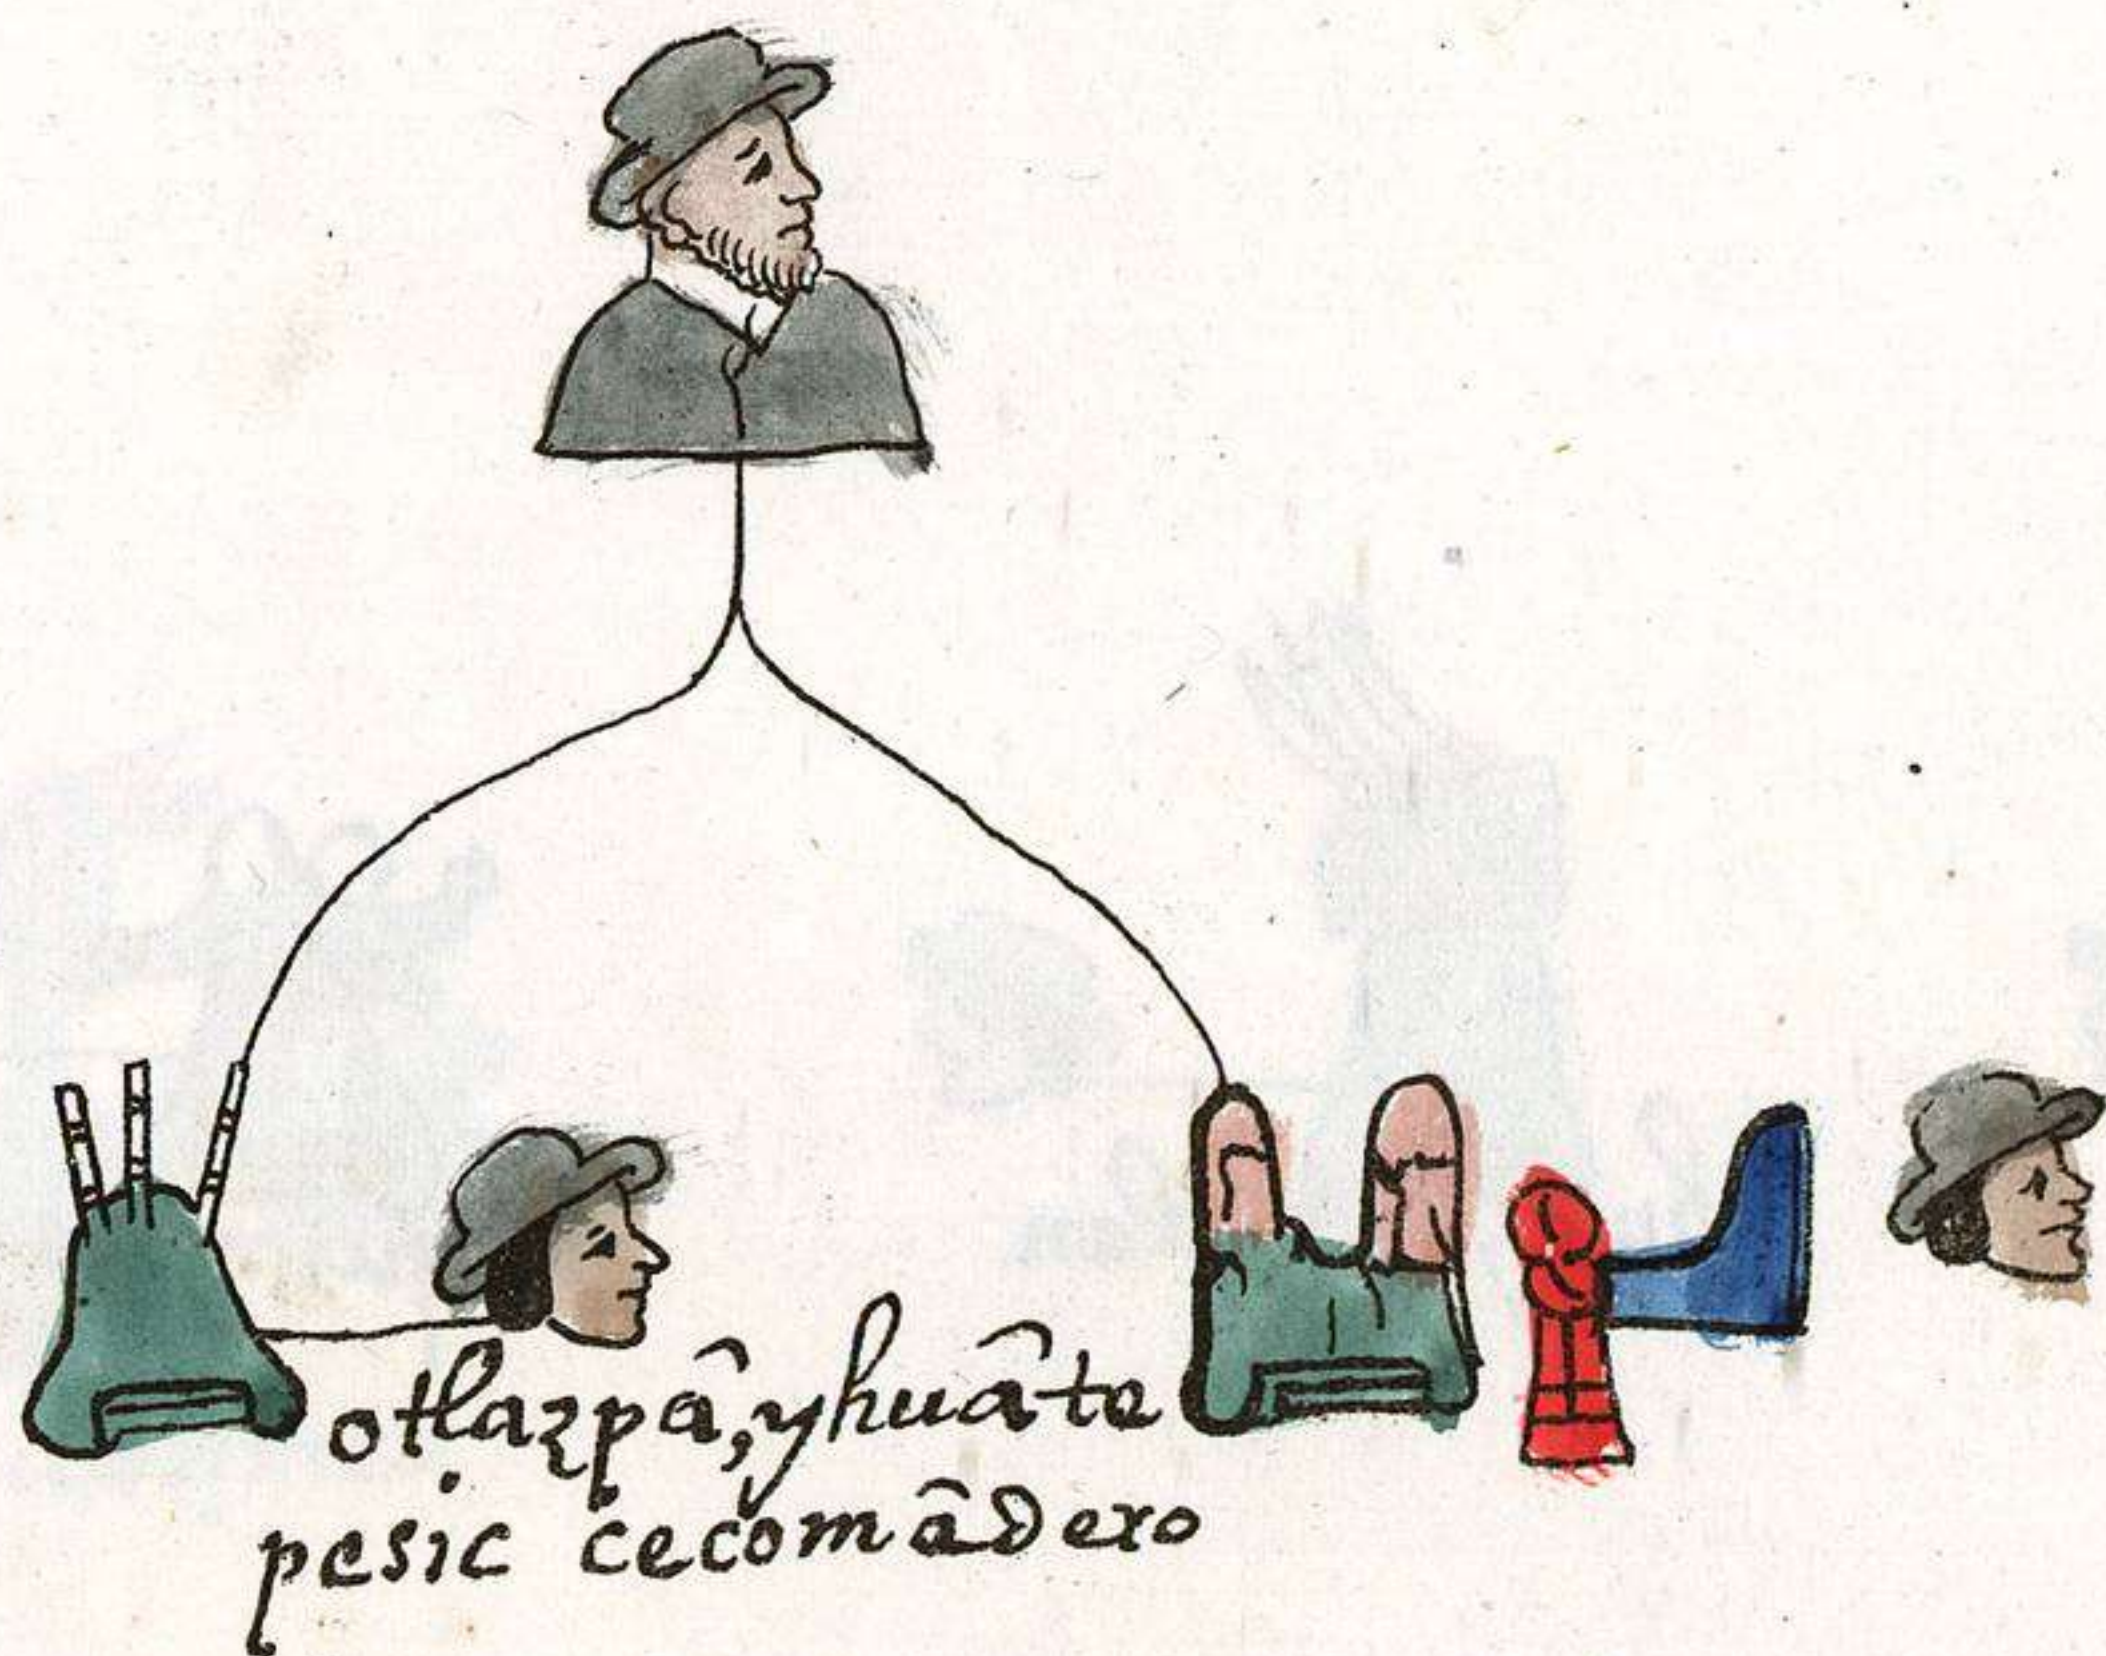 otlazpâ, yhuâ te
pesic cecomâdero